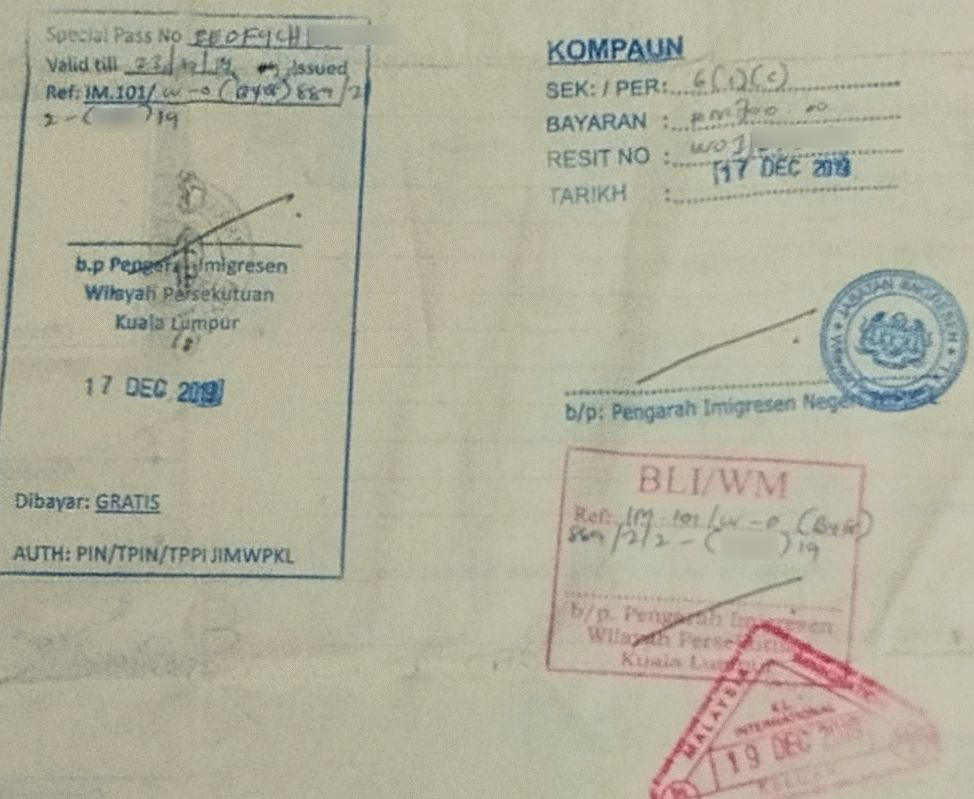 Special Pass No EEOF4CH
Valid till 23/12/19 Issued
Ref: IM.101/W-0 (BYGC) 889/2
2-( )19
b.p Pengarah Imigresen
Wilayah Persekutuan
Kuala Lumpur
17 DEC 2019
Dibayar: GRATIS
AUTH: PIN/TPIN/TPPI JIMWPKL
KOMPAUN
SEK: / PER: 6(1)(c)
BAYARAN : RM700.00
RESIT NO : W01
TARIKH : 17 DEC 2019
JABATAN IMIGRESEN
b/p: Pengarah Imigresen Negeri
BLI/WM
Ref: IM.101/W-0
889/2/2-( )19
b/p. Pengarah Imigresen
Wilayah Persekutuan
Kuala Lumpur
MALAYSIA
K.L.
INTERNATIONAL
19 DEC 2019
KELUAR